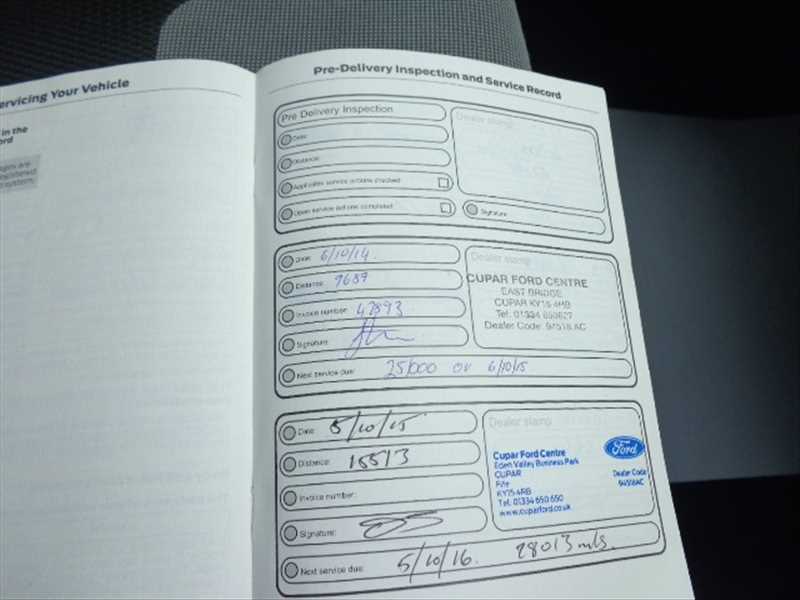 Servicing Your Vehicle
in the
Pre-Delivery Inspection and Service Record
Pre Delivery Inspection
Date:
Distance:
Applicable service actions checked
Open service actions completed
Dealer stamp
Signature
Date: 6/10/14.
Distance: 9689
Invoice number: 47893
Signature:
Next service due: 25/000 or 6/10/15
Dealer stamp
CUPAR FORD CENTRE
EAST BRIDGE
CUPAR KY15 4HB
Tel: 01334
Dealer Code: 94518 AC
Date: 5/10/15
Distance: 15513
Invoice number:
Signature:
Next service due: 5/10/16. 28013 mls.
Dealer stamp
Cupar Ford Centre
Eden Valley Business Park
CUPAR
Fife
KY15 4RB
Tel. 01334 650 650
www.cuparford.co.uk
Ford
Dealer Code
94518AC